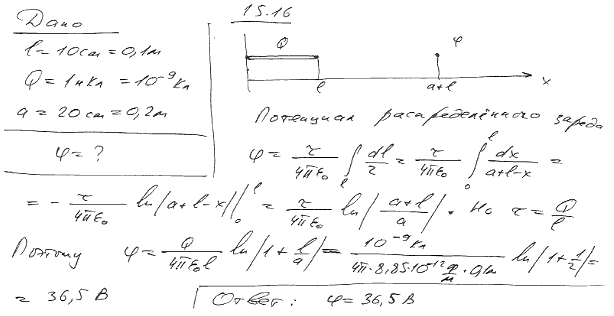 15.16
Дано
l = 10 см = 0,1 м
Q = 1 нКл = 10⁻⁹ Кл
a = 20 см = 0,2 м
φ = ?
Q
φ
l
a+l
x
Потенциал распределённого заряда
φ = τ/4πε₀ ∫_l dl/r = τ/4πε₀ ∫₀^l dx/(a+l-x) =
= - τ/4πε₀ ln|a+l-x||₀^l = τ/4πε₀ ln|(a+l)/a|. Но τ = Q/l
Поэтому φ = Q/4πε₀l ln|1+l/a| = 10⁻⁹ Кл/(4π·8,85·10⁻¹² Ф/м·0,1м) ln|1+1/2| =
= 36,5 В
Ответ: φ = 36,5 В